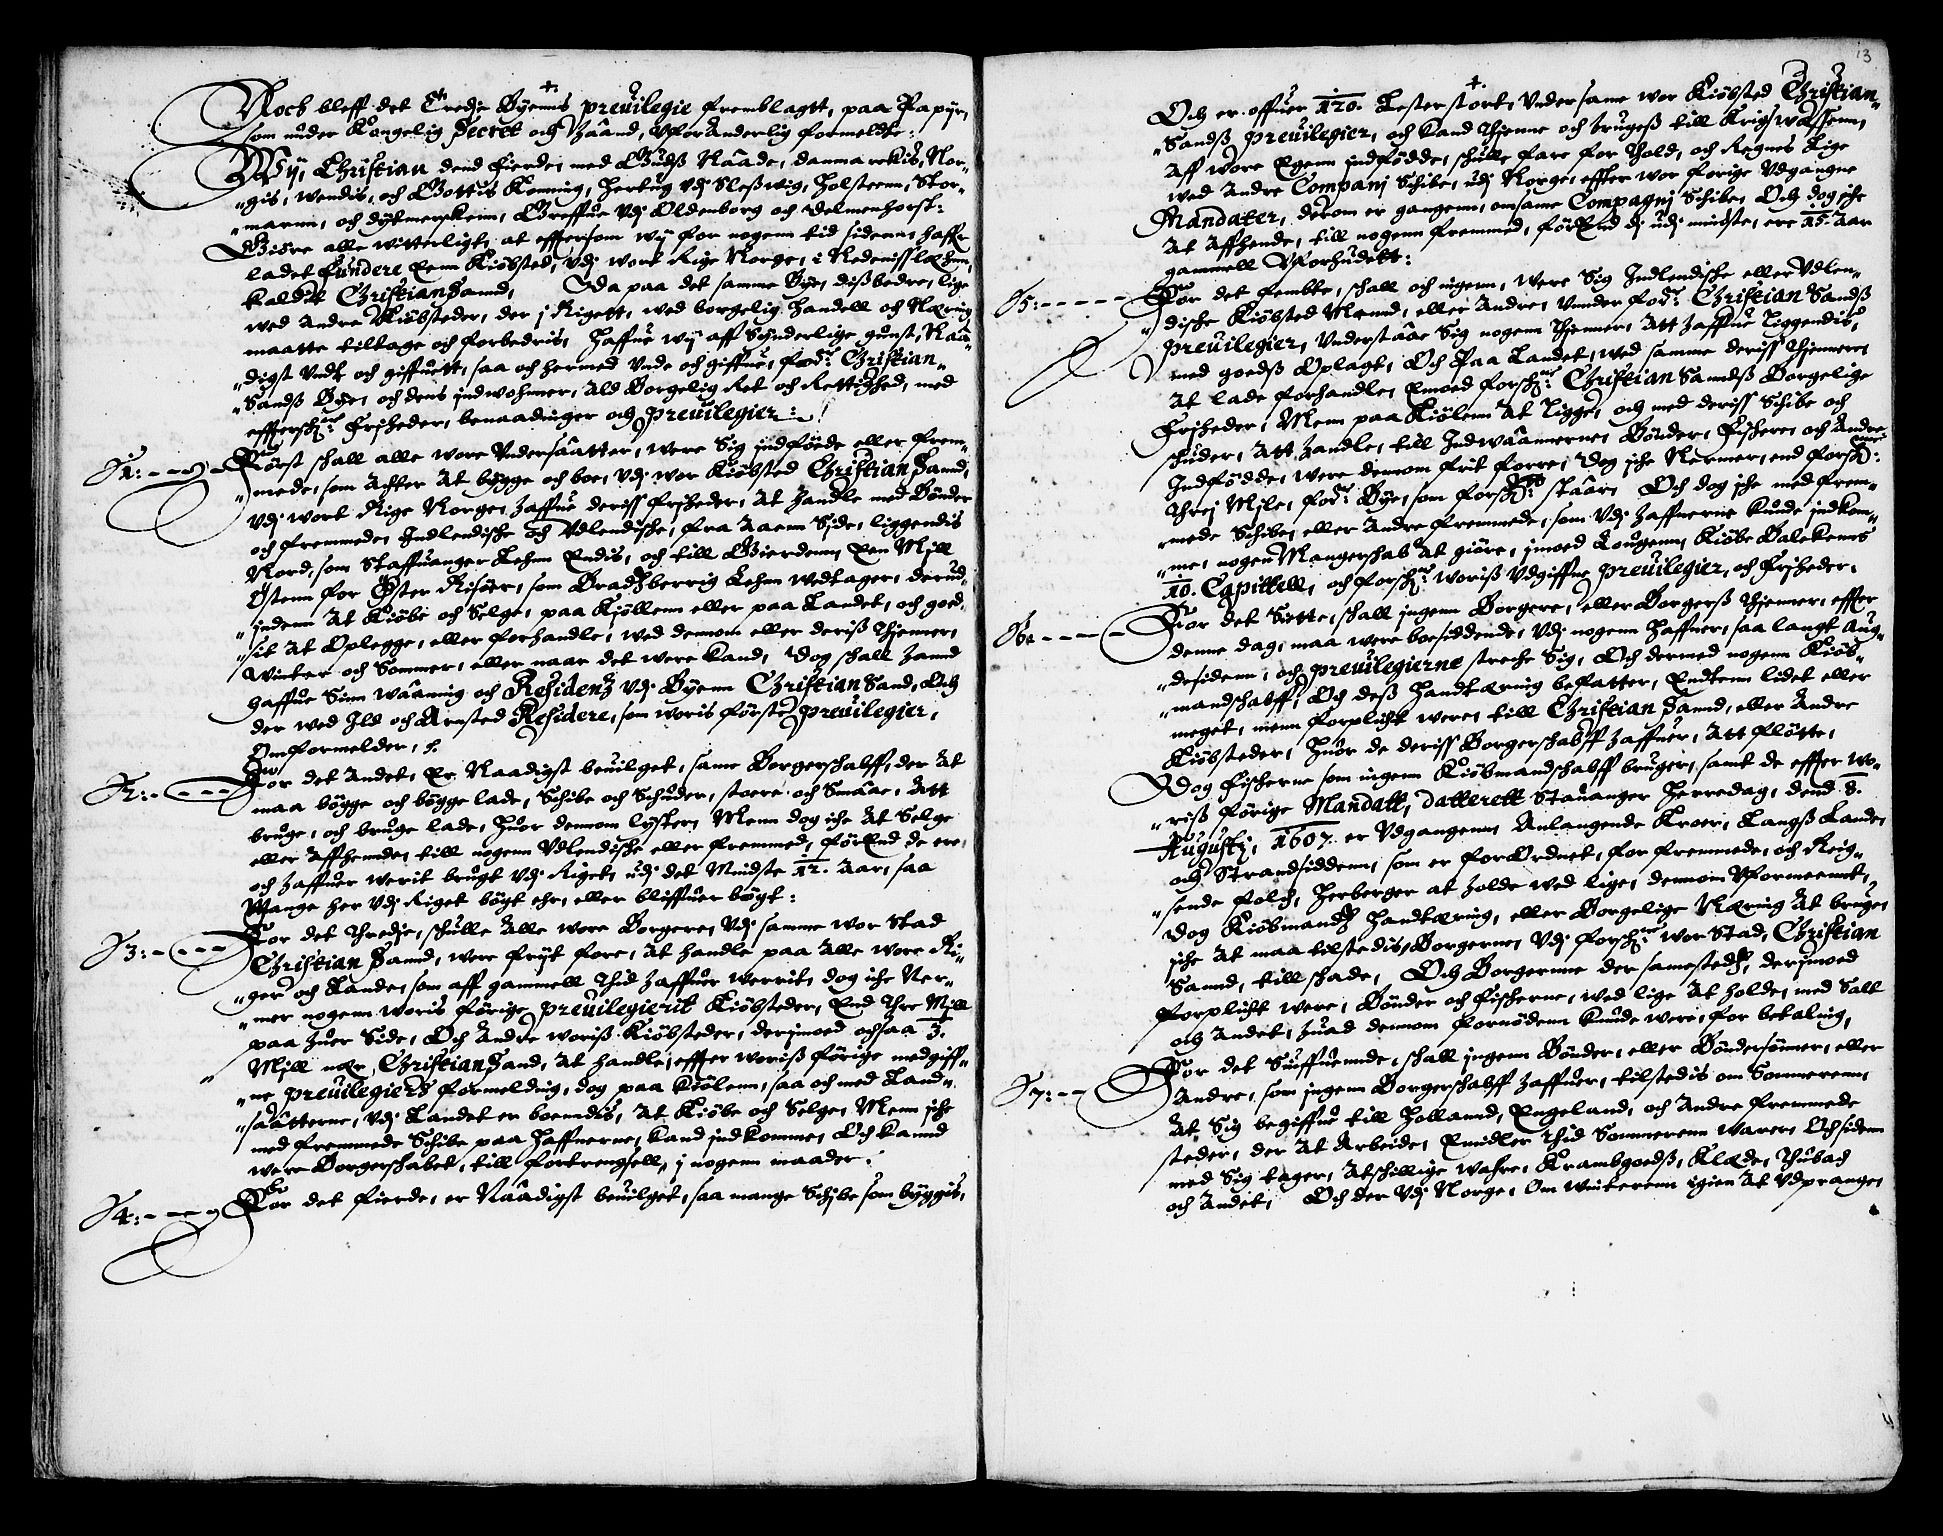 Noch bleff det Tredje Byenns preuilegie fremblagtt, paa Papijr,
som under Kongelig Secret och Haand, Vforanderlig formeldte:
Wij, Christian dend Fierde, med Gudß Naade, danmarckis, Nor-
"gis, wendis, och Gottis Konning, Hertug vdj Sleßwig, Holsteenn, Stor-
"marnn, och dytmerskenn, Greffue Vdj Oldenborg och delmenhorst:
Giöre alle witterligt, at effttersom wij for nogenn tid sidenn haffr
ladet fundere Eenn Kiöbsted, Vdj wort Rige Norge, i Nedenißlæhnn,
kaldit Christian Sannd, Oda paa det samme Bye, dißbedre, lige
wed Andre Kiöbsteder, der j Rigett, wed borgelig Handell och Næring
maatte tiltage och forbedris, Haffue wij aff Synderlige gunst, Naa-
"digst Vndt och giffuett, saa och hermed Vnde och giffue, fodr: Christian-
"Sandß Bye, och dens indwohner, Ald Borgelig Ret och Rettighed, med
effterschr: Frjheder, benaadinger och preuilegier:
S1: Förste skall alle wore Vndersaatter, were Sig indföede eller frem-
"mede, som Achter At bygge och boe, Vdj wor Kiöbsted Christian Sannd,
Vdj wort Rige Norge, haffue deriss frjheder, At handle med Bönder
och fremmede, Indlendische och Vdlendische, fra Aaenn Side, liggendis
Nord, som Staffuanger Lehnn Endis, och till Gierdenn, Een Mijll
Östenn for Öster Risöer, som Bradtzberrig Lehnn wedtager, derud-
"jndenn At Kiöbe och Selge, paa Kjöllenn eller paa Landet, och goed-
"sit At Oplegge, eller forhandle, wed dennom eller deriß Thjenner,
Winter och Sommer, eller naar det were kand, Dog skall hannd
haffue Sinn waaning och Residenz Vdj Byenn Christian Sand, Och
der wed Ild och Arnsted Residere, som woris förste preuilegier,
Omformelder, etc.
S2: For det Andet, Er Naadigst beuilget, same Borgerschabff, der At
maa bögge och bögge lade, Schibe och Schuder, stoere och Smaae, Att
bruge, och bruge lade, huor dennom lyster, Menn dog iche At Selge
eller Affhennde, till nogenn Vdlendische eller fremmed, förEnd de ere,
och haffuer werit brugt Vdj Riget, udj det Mindste 12. Aar, saa
Mange her Vdj Riget bögt ehr, eller bliffuer bögt:
S3: For det Thredje, schulle Alle wore Borgere, Vdj samme wor Stad
Christian Sannd, were frijt fore, At handle paa Alle wore Ri-
"ger och Lande, som aff gammell Thid haffuer werrit, dog iche Ner-
"mer nogenn woris förige preuilegierit Kiöbsteder, End Thre Mijll
paa huer Side, Och Andre woriß Kiöbsteder, derjmoed ochsaa 3.
Mijll nær, Christian Sand, At handle, effter woriß förige medgiff-
"ne preuilegiers formelding, dog paa kiölenn, saa och med Land-
"saatterne, Vdj Landet er boendis, At Kiöbe och Selge, Menn iche
med fremmede Schibe paa Haffnerne, kand indkomme, Och kannd
were Borgerschabet, till fortrengsell, i nogenn maader:
S4: For det fierde, er Naadigst beuilget, saa mange Schjbe som byggis,
13
Och er offuer 120. Lester stort, Vnder same wor Kiöbsted Christian-
"Sandß preuilegier, och kand Thjenne och brugeß till Krigswæssenn,
Aff wore Egenn jndfödde, schulle fare for Thold, och Regnes Lige
wed Andre Companj Schibe, udj Norge, effter wor forige Vdgangne
Mandater, derom er gangenn, omsame Compagnj Schibe, Och dog iche
At Affhende, till nogenn fremmed, förEnd dj udj mindste, ere 15. Aar
gammell Vforhudett:
S5: For det fembte, schall och ingenn, were Sig Indlendische eller Vdlen-
"dische Kiöbsted Mænnd, eller Andre, Vnnder fodr: Christian Sandß
preuilegier, Vnderstaae Sig nogenn Thjenner, Att haffue Liggendis,
med goedß Oplagt, Och Paa Landet, wed samme deriss Thjennere
At lade forhandle, Emoed forschr: Christian Sanndß Borgelige
Frjheder, Menn paa Kiölenn At Ligge, och med deriss Schibe och
schuder, Att handle, till Indwaannerne, Bönder, Fischere, och Andre
Indfödde, were dennom frit forre, Dog iche Nermer, end forschr:
Threj Mjle, fodr: Bye, som forschr: staar, Och dog iche med frem-
"mede Schibe, eller Andre fremmede, som Vdj Haffnerne kunde indkom-
"me, nogen Mangerschab At giöre, jmoed Lougenn, Kiöbe Balckenns
10. Capittell, och forschr: woriß Vdgiffne preuilegier, och frjheder.
S6: For det Siette, schall jngenn Borgere, eller Borgerß Thjenner, effter
denne dag, maa were boesiddende, Vdj nogenn Haffuer, saa langt Aug-
"desidenn, och preuilegierne streche Sig, Och dermed nogenn Kiöb-
"mandschabff, Och deß Handtæring befatter, Endtenn lidet eller
meget, menn forplicht were, till Christian Sannd, eller Andre
Kiöbsteder, huor de deriss Borgerschabff haffuer, Att flötte,
Dog Fischerne som ingenn Kiöbmandschabff bruger, samt de effter wo-
"riß förige Mandatt, datterett Stauanger Herredag, dend 8.
Augustj, 1607. er Vdgangenn, Anlangende Kroer, Langß Landet
och Strandsiddenn, som er forOrdnet, for fremmede, och Reig-
"sende folch, Herberger at holde wed lige, dennom Vformeennt,
Dog Kiöbmandtz Handtæring, eller Borgelige Næring At bruge,
iche At maa tilstedis, Borgerne, Vdj forschr: wor Stad, Christian
Sannd, till schade, Och Borgerne der samestedtz, derjmoed
forplicht were, Bönder och Fischerne, wed lige At holde, med Salt
och Andet, huad dennom fornödenn kunde were, for betaling,
S7: For det Siuffuennde, schall jngenn Bönder, eller Böndersönner, eller
Andre, som jngenn Borgerschabff haffuer, tilstedis om Sommerenn,
At Sig begiffue till Hollannd, Engeland, och Andre fremmede
steder, der At Arbeide, Emidler thid Sommerenn warer, Och siden
med Sig tager, Atschillige wahre, Krambgoedß, Klæde, Thubach
och Andet, Och der Vdj Norge, Om Winterenn igien At Vdprange,